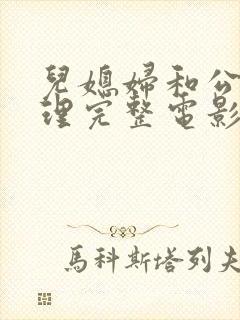 兒媳婦和公
理完整電影
馬科斯塔列夫